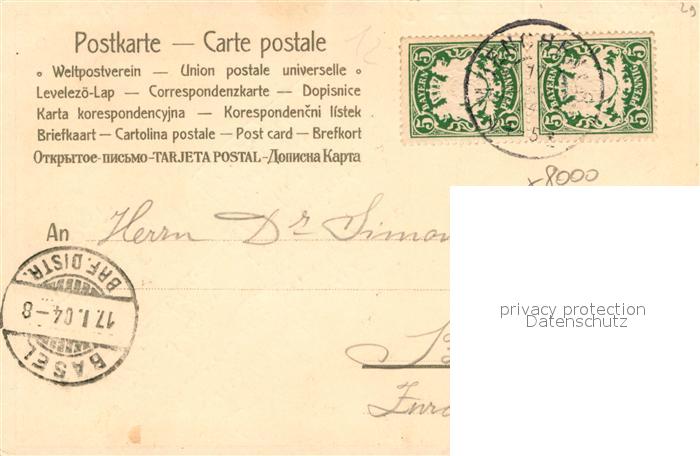 Postkarte — Carte postale
Weltpostverein — Union postale universelle
Levelező-Lap — Correspondenzkarte — Dopisnice
Karta korespondencyjna — Korespondenčni lístek
Briefkaart — Cartolina postale — Post card — Brefkort
Открытое-письмо-TARJETA POSTAL-Дописна Карта
5 BAYERN PFENNIG 5
5 5
5 BAYERN PFENNIG 5
5 5
29
8000
An Herrn Dr Simon
BASEL
17.I.04-8
BRF.DISTR.
privacy protection
Datenschutz